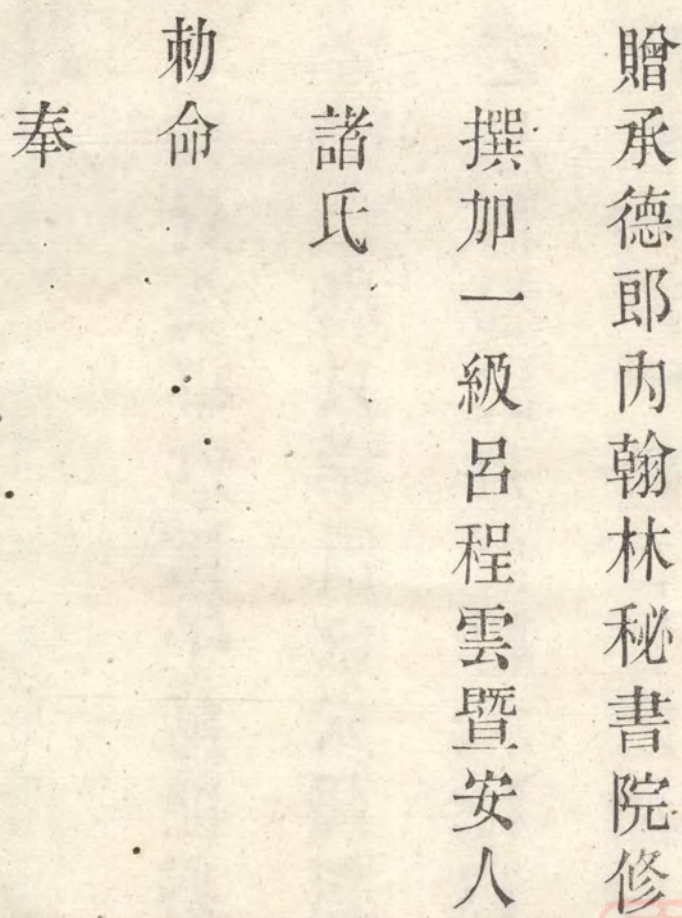 贈承德郎內翰林秘書院修
撰加一級呂程雲暨安人
諸氏
勅命
奉